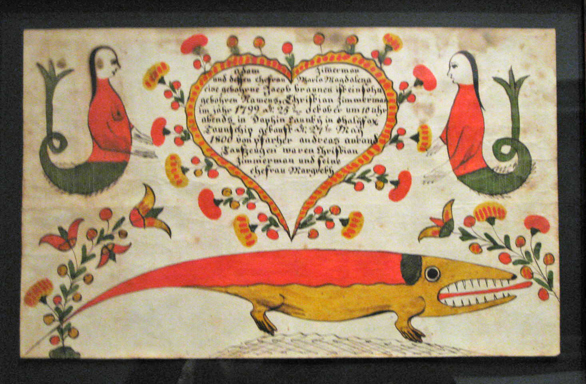 Adam Zimmerman
und dessen ehefrau Maria Magdalena
eine gebohrne Jacob braunen ist ein sohn
gebohren Namens, Christian Zimmerman
im jahr 1799 d: 25 october um 10 uhr
abends, in Dophin Caunty in Halifax
Taunschip getauft d: 29 May
1800 von pfarher andreas aurand
Taufzeugen waren Christian
Zimmerman und seine
ehefrau Margreth